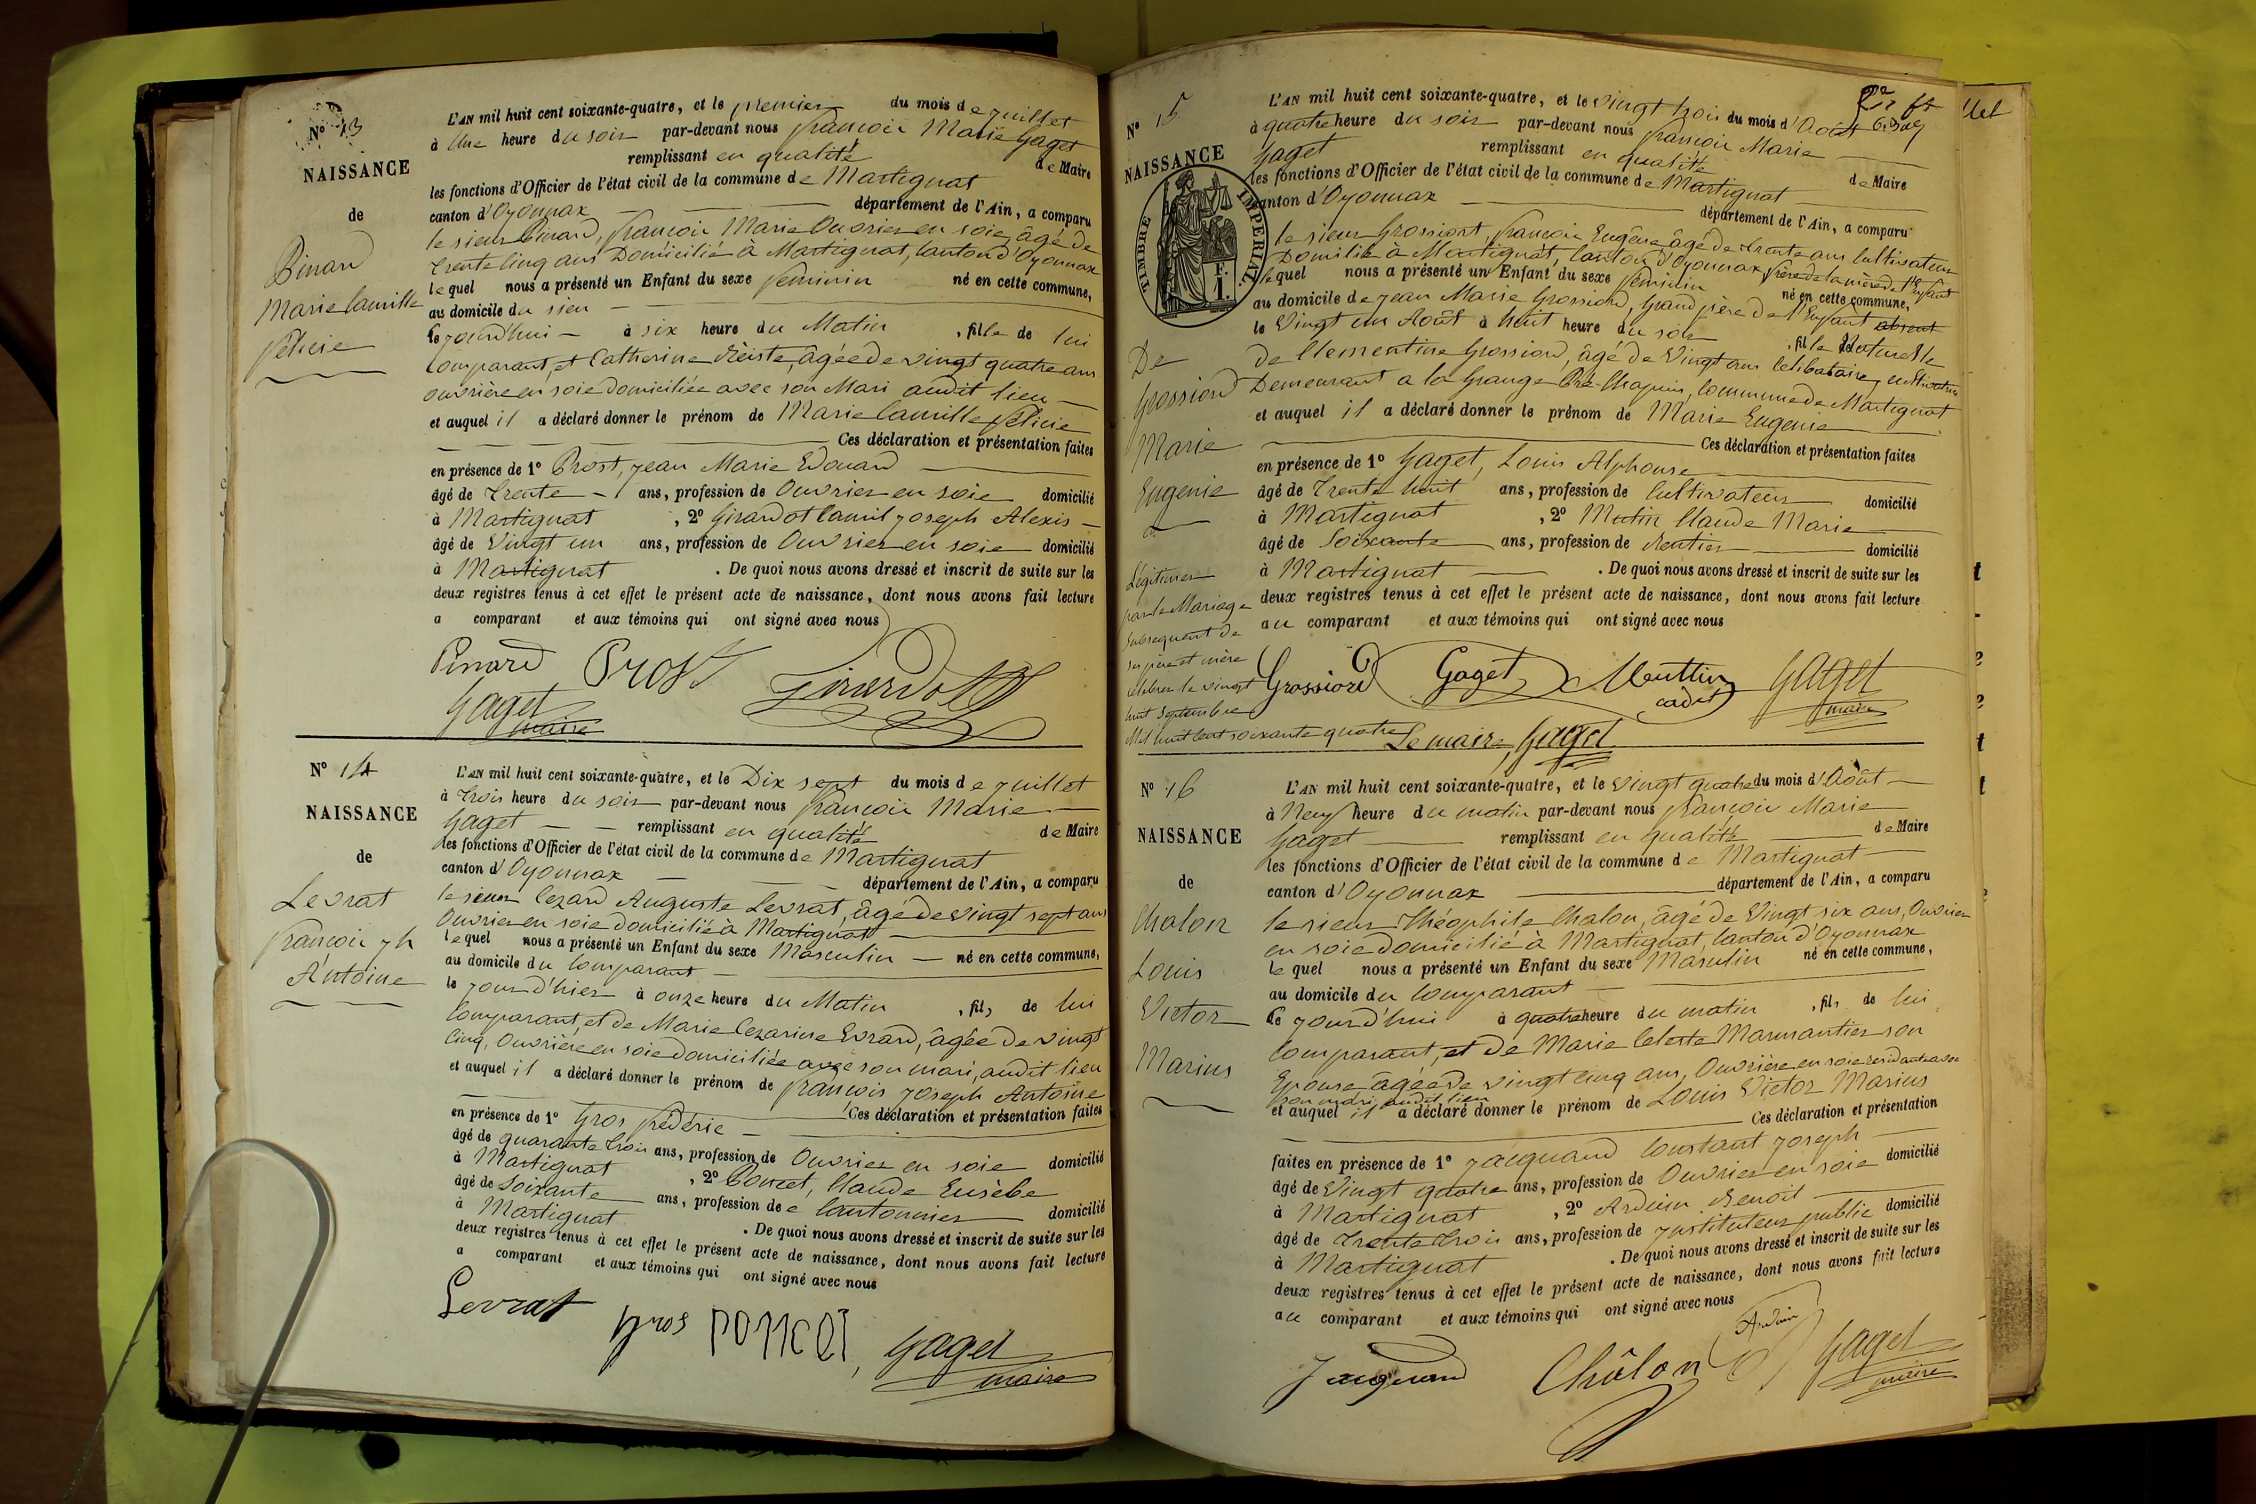 N° 13
NAISSANCE
de
Binard
Marie Camille
Félicie
L'AN mil huit cent soixante-quatre, et le premier du mois de juillet
à Une heure du soir par-devant nous françois Marie Gaget
remplissant en qualité de Maire
les fonctions d'Officier de l'état civil de la commune de Martignat
canton d'Oyonnax département de l'Ain, a comparu
le sieur Binard, françois Marie Ouvrier en soie, âgé de
trente cinq ans Domicilié à Martignat, Canton d'Oyonnax
lequel nous a présenté un Enfant du sexe féminin né en cette commune,
au domicile du sien
le jourd'hui à six heure du Matin, fille de lui
Comparant, et Catherine âgée de vingt quatre ans
ouvrière en soie domiciliée avec son Mari audit lieu
et auquel il a déclaré donner le prénom de Marie Camille félicie
Ces déclaration et présentation faites
en présence de 1° Prost, Jean Marie Edouard
âgé de Trente ans, profession de Ouvrier en soie domicilié
à Martignat, 2° Girardot Camil Joseph Alexis
âgé de Vingt un ans, profession de Ouvrier en soie domicilié
à Martignat. De quoi nous avons dressé et inscrit de suite sur les
deux registres tenus à cet effet le présent acte de naissance, dont nous avons fait lecture
a comparant et aux témoins qui ont signé avec nous
Pinard Prost Girardot
Gaget
maire
N° 14
NAISSANCE
de
Levrat
françois jh
Antoine
L'AN mil huit cent soixante-quatre, et le Dix sept du mois de juillet
à trois heure du soir par-devant nous françois Marie
Gaget remplissant en qualité de Maire
les fonctions d'Officier de l'état civil de la commune de Martignat
canton d'Oyonnax département de l'Ain, a comparu
le sieur Cezard Auguste Levrat, âgé de vingt sept ans
Ouvrier en soie domicilié à Martignat
lequel nous a présenté un Enfant du sexe Masculin né en cette commune,
au domicile du Comparant
le jour d'hier à onze heure du Matin, fils de lui
Comparant, et de Marie Cezarine Evrard, âgée de vingt
Cinq, Ouvrière en soie domiciliée avec son mari, audit lieu
et auquel il a déclaré donner le prénom de françois Joseph Antoine
Ces déclaration et présentation faites
en présence de 1° Gros frédéric
âgé de quarante trois ans, profession de Ouvrier en soie domicilié
à Martignat, 2° Poncet, Claude Eusèbe
âgé de soixante ans, profession de Cantonnier domicilié
à Martignat. De quoi nous avons dressé et inscrit de suite sur les
deux registres tenus à cet effet le présent acte de naissance, dont nous avons fait lecture
a comparant et aux témoins qui ont signé avec nous
Levrat Gros Poncet Gaget
maire
N° 15
NAISSANCE
TIMBRE IMPERIAL
F.
1.
De
Grossiord
Marie
Eugenie
Légitimée
par le Mariage
subsequent de
ses père et mère
célébrer le vingt
huit Septembre
Mil huit cent soixante quatre
Le maire, Gaget
L'AN mil huit cent soixante-quatre, et le vingt trois du mois d'Août
à quatre heure du soir par-devant nous françois Marie
Gaget remplissant en qualité de Maire
les fonctions d'Officier de l'état civil de la commune de Martignat
canton d'Oyonnax département de l'Ain, a comparu
le sieur Grossiort, françois Eugêne âgé de trente ans Cultivateur
Domicilié à Martignat, Canton d'Oyonnax frère de la mère de l'Enfant
lequel nous a présenté un Enfant du sexe féminin né en cette commune,
au domicile de Jean Marie Grossiord, grand père de l'Enfant absent
le Vingt un Août à huit heure du soir, fille Naturelle
de Clementine Grossiord, âgé de Vingt ans Celibataire, cultivatrice
Demeurant a la Grange Pré-Chapuis, Commune de Martignat
et auquel il a déclaré donner le prénom de Marie Eugenie
Ces déclaration et présentation faites
en présence de 1° Gaget, Louis Alphonse
âgé de Trente huit ans, profession de Cultivateur domicilié
à Martignat, 2° Mutin Claude Marie
âgé de Soixante ans, profession de Rentier domicilié
à Martignat. De quoi nous avons dressé et inscrit de suite sur les
deux registres tenus à cet effet le présent acte de naissance, dont nous avons fait lecture
au comparant et aux témoins qui ont signé avec nous
Grossiord Gaget Muttin Gaget
cadet maire
N° 16
NAISSANCE
de
Chalon
Louis
Victor
Marius
L'AN mil huit cent soixante-quatre, et le vingt quatre du mois d'Août
à Neuf heure du matin par-devant nous françois Marie
Gaget remplissant en qualité de Maire
les fonctions d'Officier de l'état civil de la commune de Martignat
canton d'Oyonnax département de l'Ain, a comparu
le sieur Théophile Chalon, âgé de Vingt six ans, Ouvrier
en soie domicilié à Martignat, Canton d'Oyonnax
lequel nous a présenté un Enfant du sexe Masculin né en cette commune,
au domicile du Comparant
le jourd'hui à quatre heure du matin, fils de lui
Comparant, et de Marie Celeste Marmantier son
Epouse âgée de vingt cinq ans, Ouvrière en soie
son mari audit lieu
et auquel il a déclaré donner le prénom de Louis Victor Marius
Ces déclaration et présentation
faites en présence de 1° Jacquand Constant Joseph
âgé de Vingt quatre ans, profession de Ouvrier en soie domicilié
à Martignat, 2° Arduin Benoit
âgé de Trente trois ans, profession de Instituteur public domicilié
à Martignat. De quoi nous avons dressé et inscrit de suite sur les
deux registres tenus à cet effet le présent acte de naissance, dont nous avons fait lecture
au comparant et aux témoins qui ont signé avec nous
Jacquand Châlon Arduin Gaget
maire